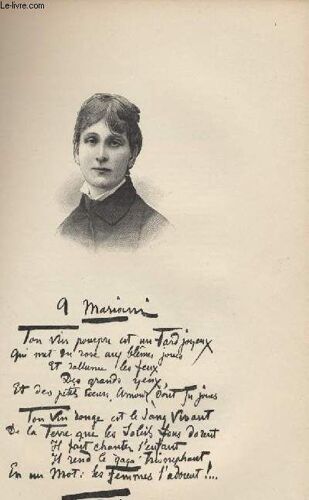 Le-livre.com
A Mariani
Ton vin pourpre est un fard joyeux
Qui met du rose aux blêmes joues
Et rallume les feux
Des grands yeux,
Et des petits cœurs, Amour, dont tu joues
Ton Vin Rouge est le Sang Vivant
De la Terre que les Soleils fous dorent
Il fait chanter l'enfant
Il rend le gaga triomphant
En un Mot : les Femmes l'adorent !...